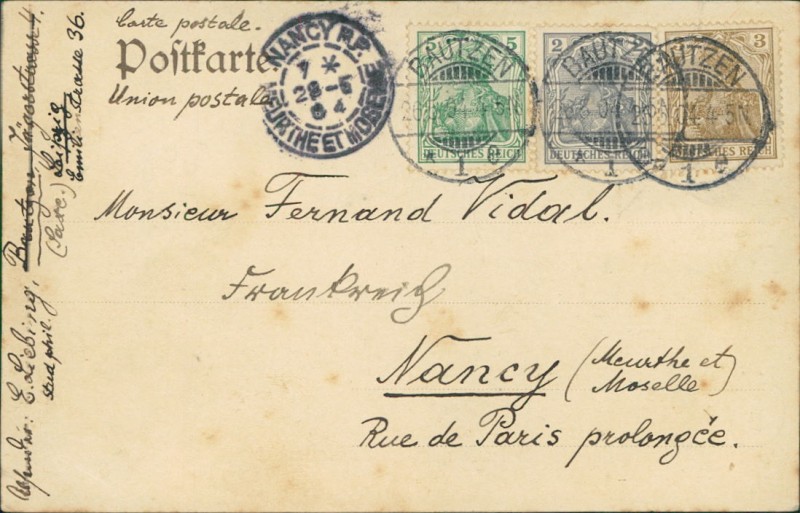 Carte postale.
Postkarte
Union postale
NANCY R.P.
7 *
28-5
04
MEURTHE ET MOSELLE
5
DEUTSCHES REICH
2
DEUTSCHES REICH
3
DEUTSCHES REICH
BAUTZEN
* 1 c
BAUTZEN
* 1 c
BAUTZEN
4-5N
* 1 c
Monsieur Fernand Vidal.
Frankreich
Nancy (Meurthe et
Moselle)
Rue de Paris prolongée.
E. Liebing, Bautzen, Jägerstrasse 4.
stud phil. (Saxe.) Leipzig
Emilienstrasse 36.